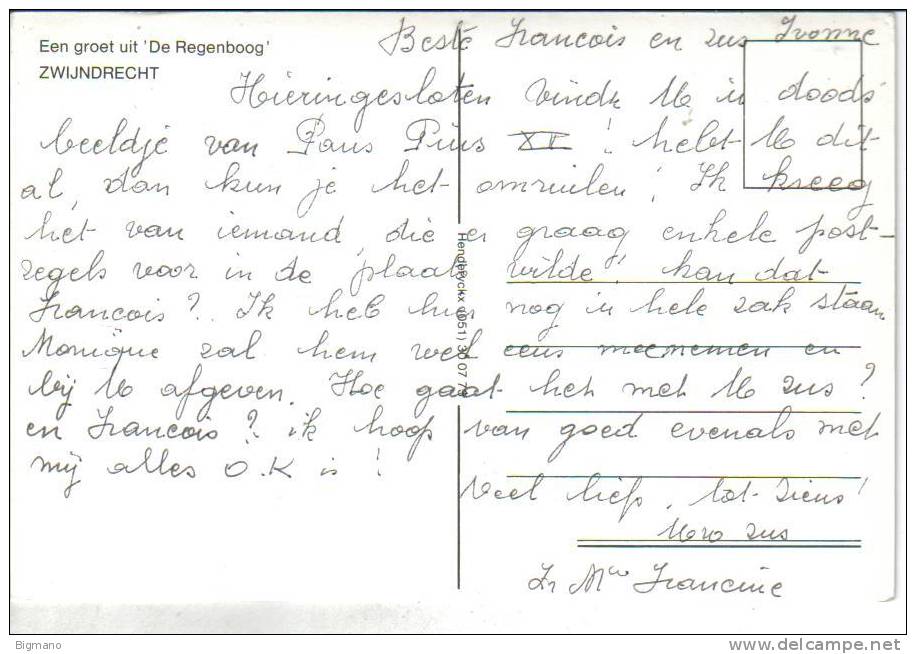 Een groet uit 'De Regenboog'
ZWIJNDRECHT
Beste Francois en zus Yvonne
Hieringesloten vindt U 'n doods
beeldje van Paus Pius XI! hebt U dit
al, dan kun je het omruilen! Ik kreeg
het van iemand, die er graag enkele post-
zegels voor in de plaats wilde! kan dat
Francois? Ik heb hier nog 'n hele zak staan
Monique zal hem wel eens meenemen en
bij U afgeven. Hoe gaat het met U zus?
en Francois? ik hoop van goed evenals met
mij alles O.K is!
Veel liefs, tot ziens!
Uw zus
Zr Mie Francine
Henderyckx (051) 30 07 7
Bigmano
www.delcampe.net